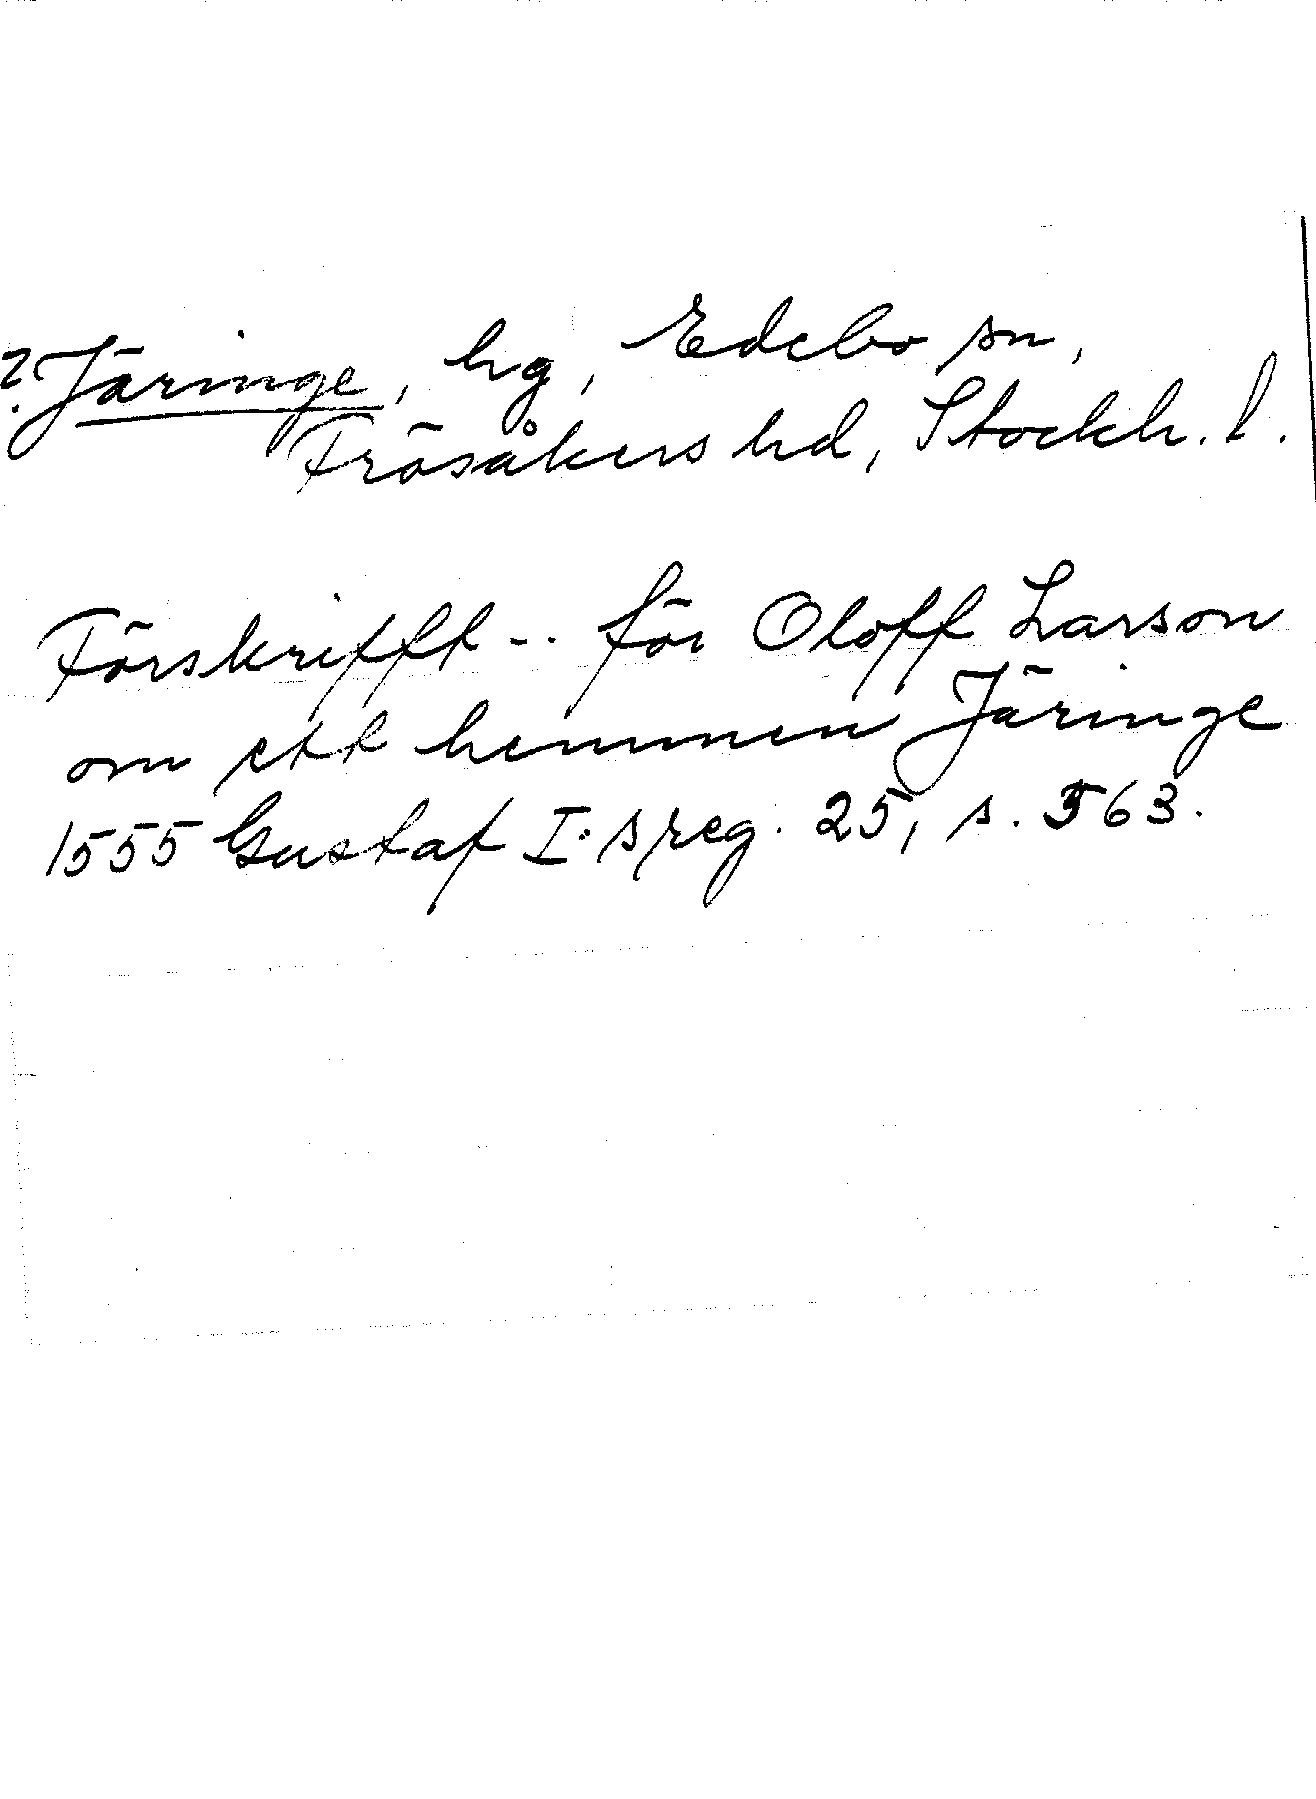 ? Järinge, hg, Edebo sn,
Frösåkers hd, Stockh. l.
Förskrifft -- för Oloff Larson
om ett hemmen Järinge
1555 Gustaf I:s reg. 25, s. 563.